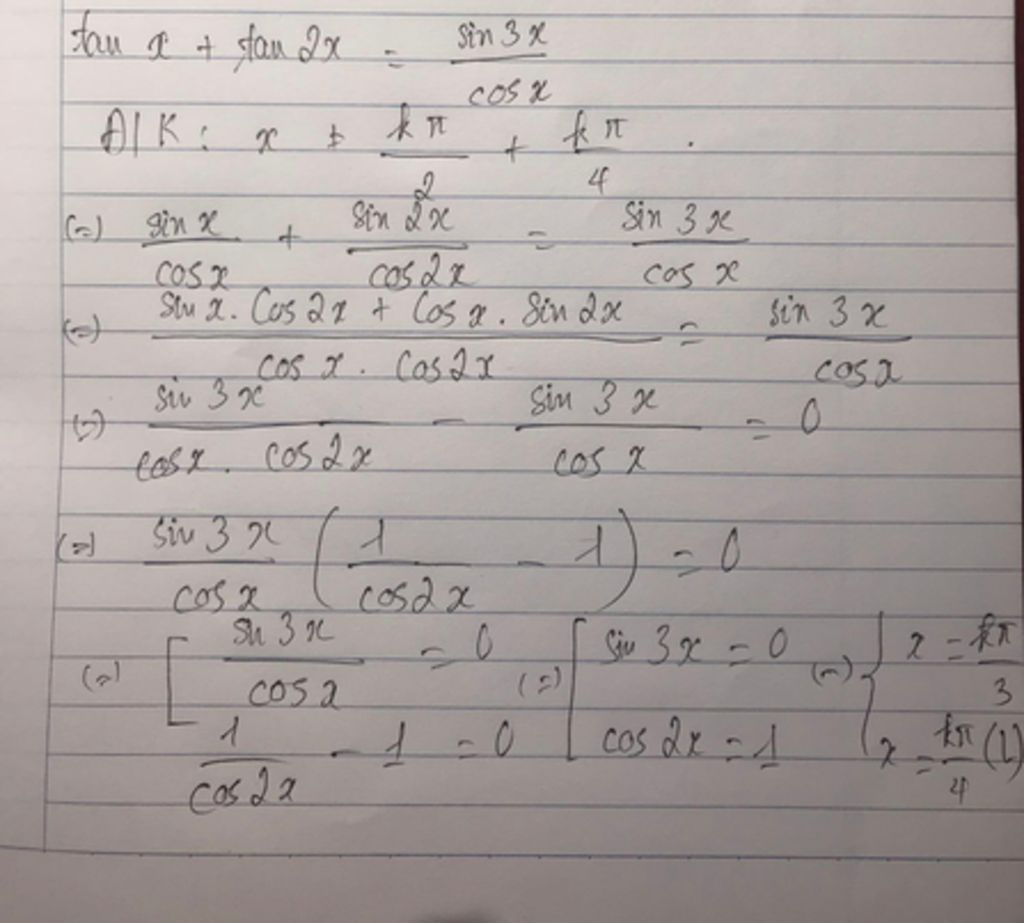 tan x + tan 2x = sin 3x / cos x
Đ/K: x ≠ kπ/2 + kπ/4.
(=) sin x / cos x + sin 2x / cos 2x = sin 3x / cos x
(=) sin x. Cos 2x + Cos x. Sin 2x / cos x. Cos 2x = sin 3x / cos x
(=) sin 3x / cos x. cos 2x - sin 3x / cos x = 0
(=) sin 3x / cos x (1 / cos 2x - 1) = 0
(=) [ sin 3x / cos x = 0 (=) [ sin 3x = 0 (=) { x = kπ/3
1 / cos 2x - 1 = 0 cos 2x = 1 x = kπ/4 (L)